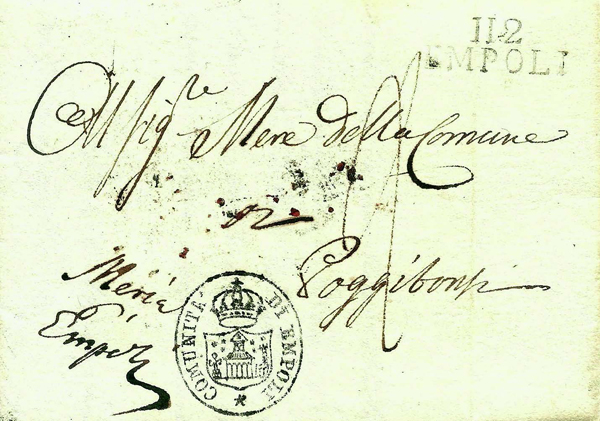 112
EMPOLI
All Sig.re Mere della Comune
4
di
Poggibonsi
Meria
Empoli
COMUNITÀ DI EMPOLI